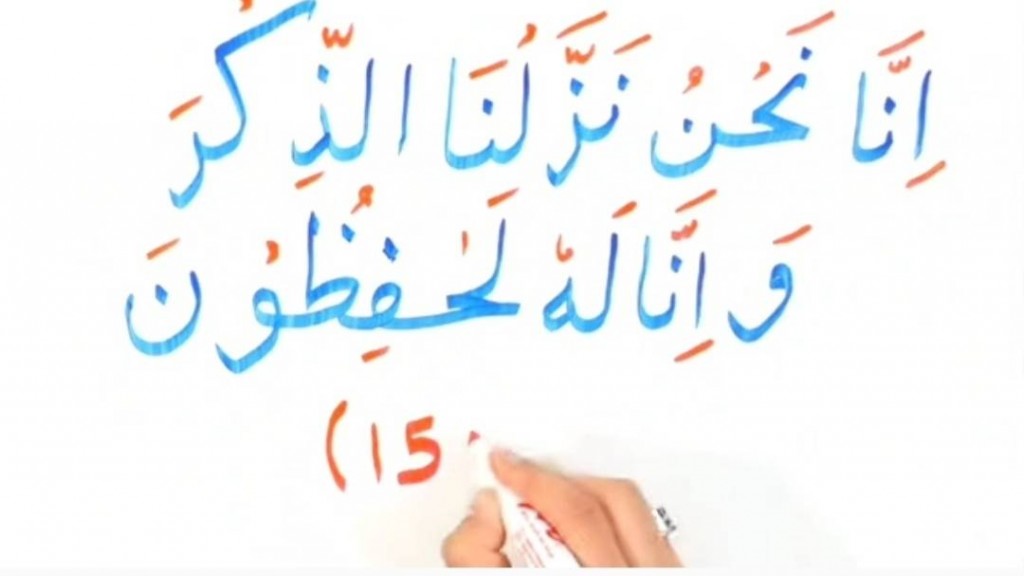 اِنَّا نَحْنُ نَزَّلْنَا الذِّكْرَ
وَ اِنَّا لَهٗ لَحٰفِظُوْنَ
(15